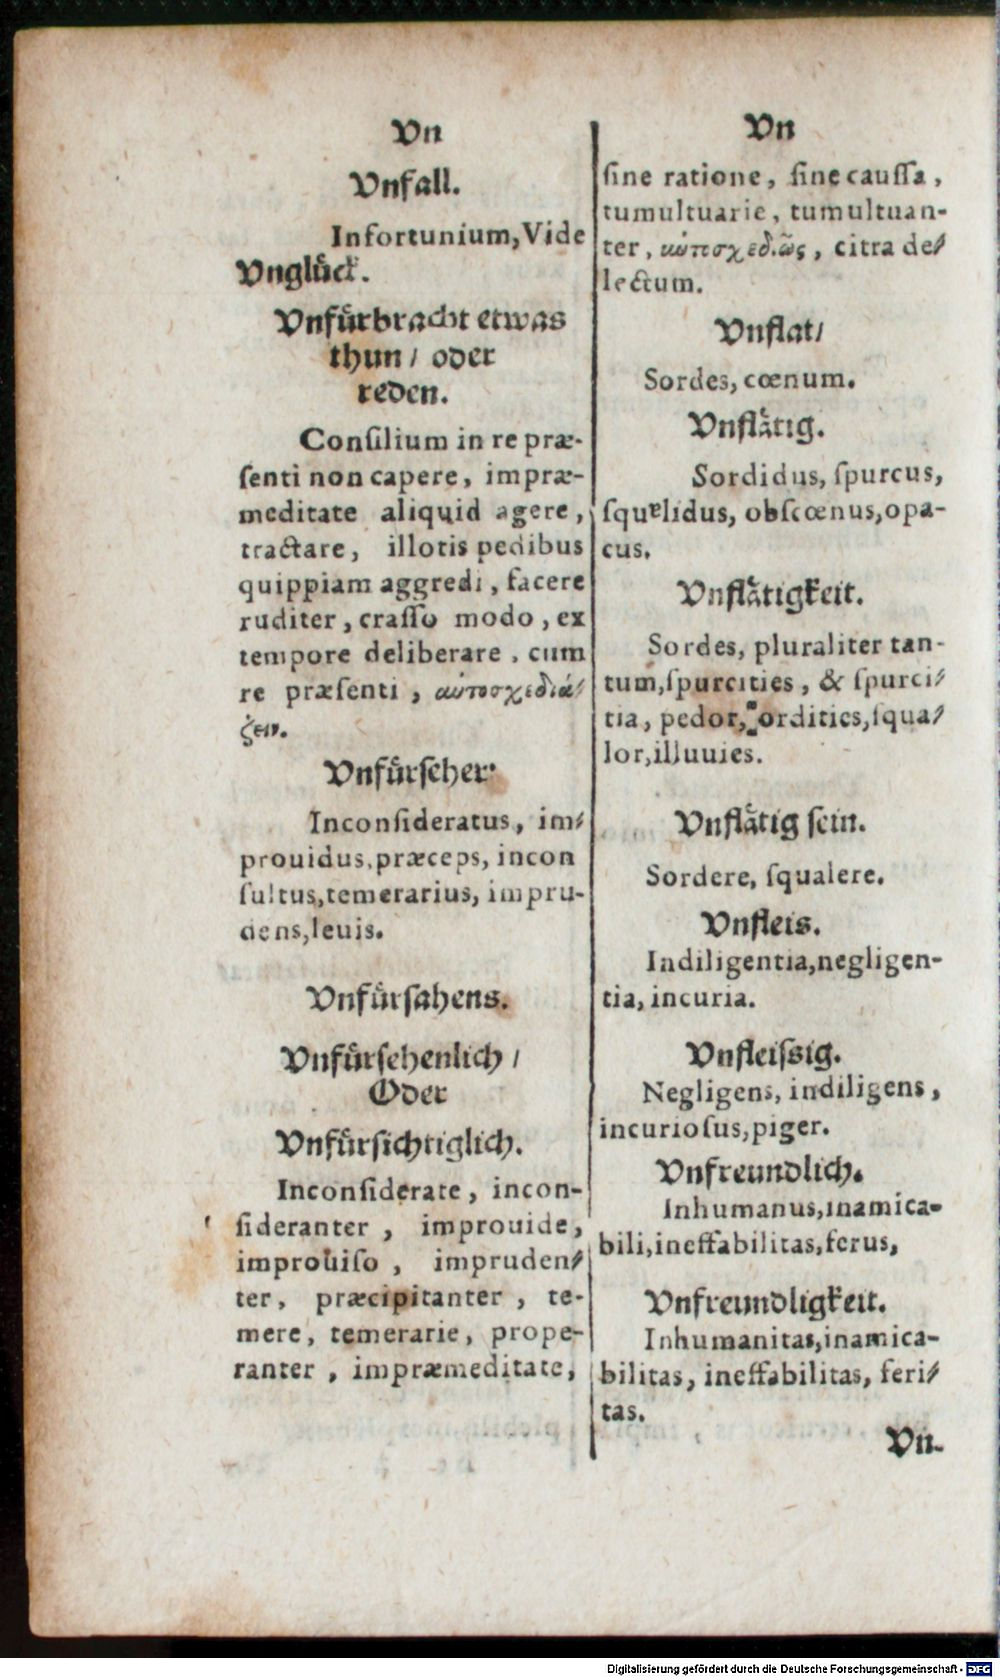 Vn
Vnfall.
Infortunium, Vide
Vnglůck.
Vnfůrbracht etwas
thun / oder
reden.
Conſilium in re præ-
ſenti non capere, impræ-
meditate aliquid agere,
tractare, illotis pedibus
quippiam aggredi, facere
ruditer, craſſo modo, ex
tempore deliberare, cum
re præſenti, αὐτοσχεδιά⸗
ζειν.
Vnfůrſeher
Inconſideratus, im⸗
prouidus, præceps, incon
ſultus, temerarius, impru-
dens, leuis.
Vnfůrſahens.
Vnfůrſehenlich /
Oder
Vnfůrſichtiglich.
Inconſiderate, incon-
ſideranter, improuide,
improuiſo, impruden⸗
ter, præcipitanter, te-
mere, temerarie, prope-
ranter, impræmeditate,
Vn
ſine ratione, ſine cauſſa,
tumultuarie, tumultuan-
ter, citra de⸗
lectum.
Vnflat /
Sordes, cœnum.
Vnflåtig.
Sordidus, ſpurcus,
ſqualidus, obſcœnus, opa-
cus.
Vnflåtigkeit.
Sordes, pluraliter tan-
tum, ſpurcities, & ſpurci⸗
tia, pedor, ſordities, ſqua⸗
lor, illuuies.
Vnflåtig ſein.
Sordere, ſqualere.
Vnfleis.
Indiligentia, negligen-
tia, incuria.
Vnfleiſsig.
Negligens, indiligens,
incurioſus, piger.
Vnfreundlich.
Inhumanus, inamica-
bili, ineffabilitas, ferus,
Vnfreundligkeit.
Inhumanitas, inamica-
bilitas, ineffabilitas, feri⸗
tas.
Vn-
Digitalisierung gefördert durch die Deutsche Forschungsgemeinschaft - DFG